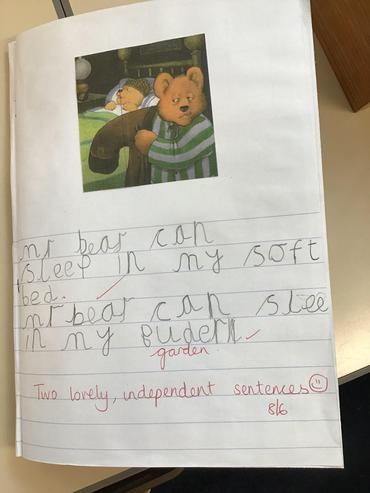 mr bear can
sleep in my soft
bed.
mr bear can slee
in my gudern
garden.
Two lovely, independent sentences
8/6